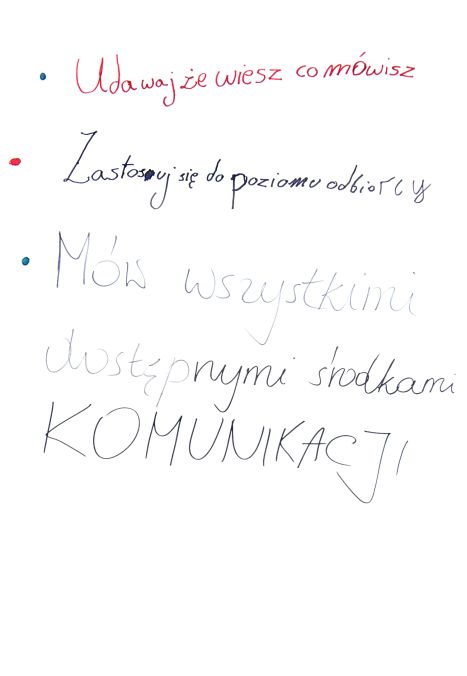 Udawaj że wiesz co mówisz
Zastosuj się do poziomu odbiorcy
Mów wszystkimi
dostępnymi środkami
KOMUNIKACJI